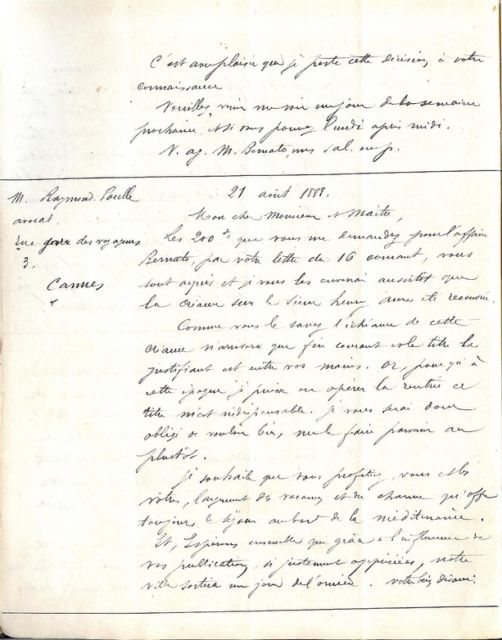 C'est avec plaisir que je porte cette décision à votre
connaissance
Veuillez venir me voir un jour de la semaine
prochaine, et si vous pouvez lundi après midi.
V. ag. M. Bernato, mes sal. emp.
M. Raymond Poulle
avocat
rue des voyageurs
3.
Cannes
21 août 1888.
Mon cher Monsieur et Maître,
Les 200 que vous me demandez pour l'affaire
Bernato, par votre lettre du 16 courant, vous
sont acquis et je vous les enverrai aussitôt que
la créance sur le sieur Henry aura été recouvrée.
Comme vous le savez l'échéance de cette
créance n'arrivera que fin courant et le titre la
justifiant est entre vos mains. Or, pour qu'à
cette époque je puisse en opérer la rentrée ce
titre m'est indispensable. Je vous serai donc
obligé de vouloir bien me le faire parvenir au
plustôt.
Je souhaite que vous profitiez, vous et les
vôtres, largement des vacances et du charme qu'offre
toujours le séjour au bord de la méditerranée.
Et, Espérons ensemble que grâce à l'influence de
vos publications, si justement appréciées, notre
ville sortira un jour de l'ornière. votre bien dévoué.